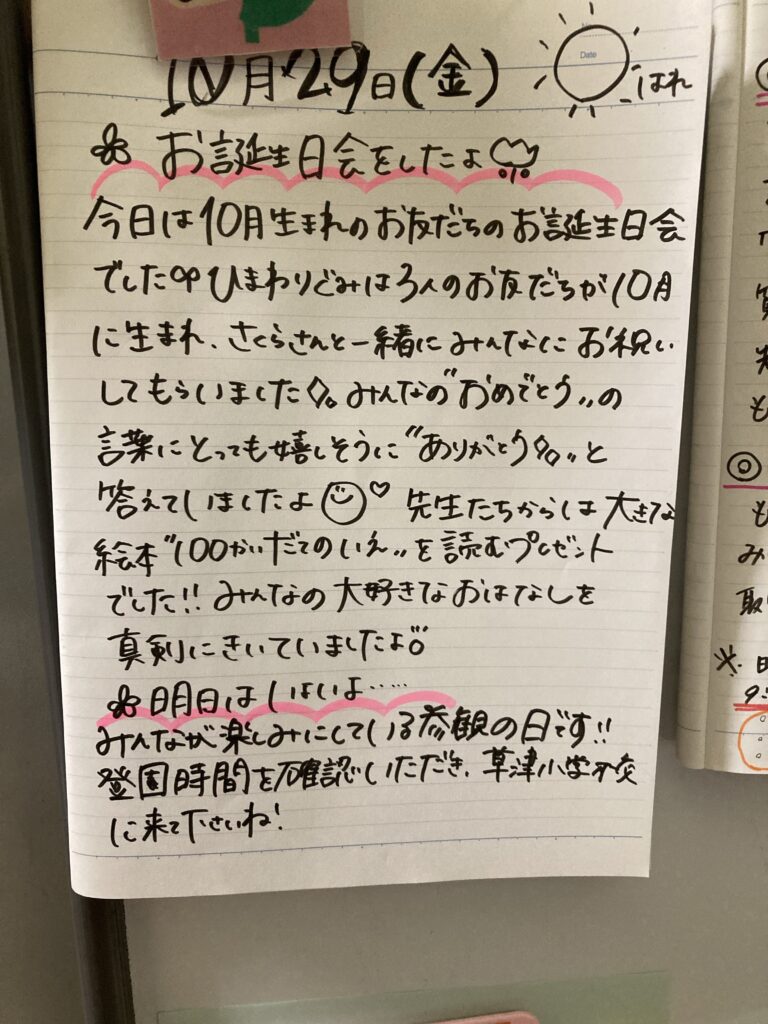 10月29日(金) はれ
Date
お誕生日会をしたよ
今日は10月生まれのお友だちのお誕生日会
でした ひまわりぐみは3人のお友だちが10月
に生まれ、さくらさんと一緒にみんなにお祝い
してもらいました。みんなの"おめでとう"の
言葉にとっても嬉しそうに"ありがとう"と
答えていましたよ 先生たちからは大きな
絵本"100かいだてのいえ"を読むプレゼント
でした!! みんなの大好きなおはなしを
真剣にきいていましたよ
明日はいよいよ……
みんなが楽しみにしている参観の日です!!
登園時間を確認いただき、草津小学校
に来て下さいね!
◎
も
◎
も
み
取
※